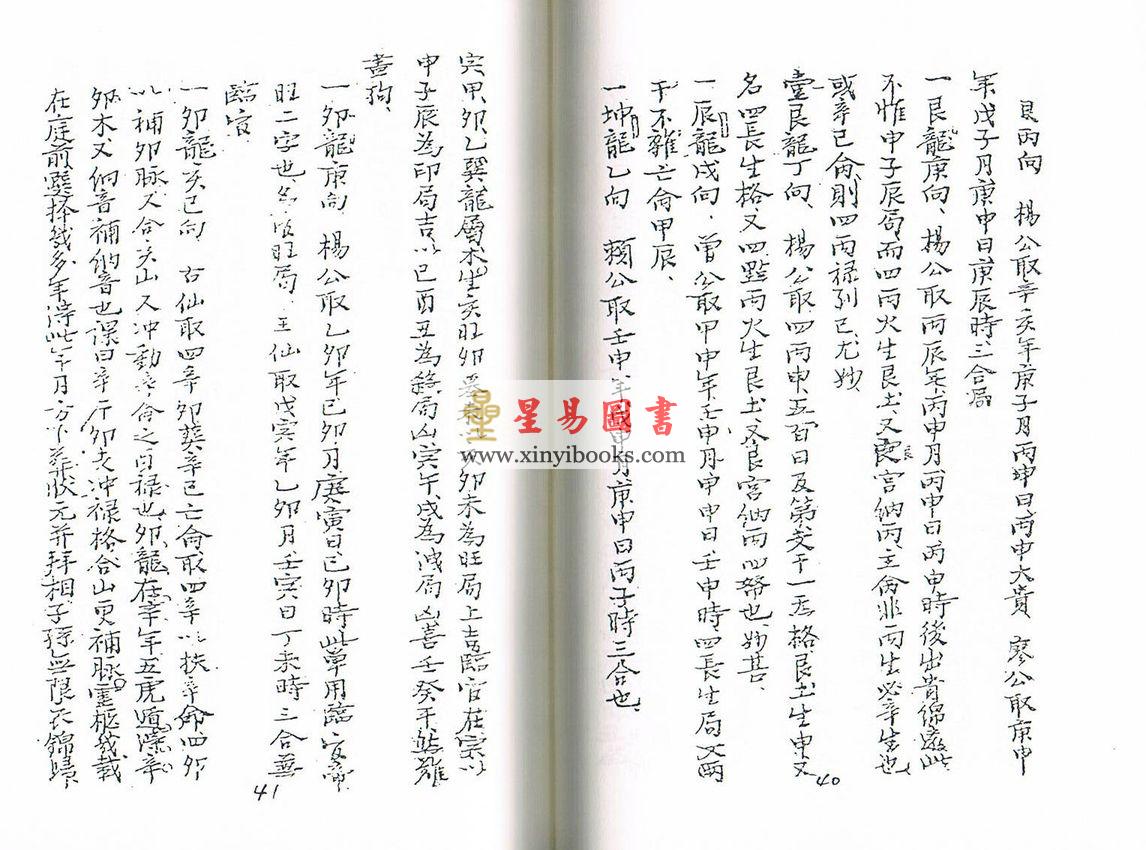 艮丙向 楊公取辛亥年庚子月丙申日丙申大貴 廖公取庚申
年戊子月庚申日庚辰時三合局
一艮龍庚向、楊公取丙辰年丙申月丙申日丙申時後出貴
不惟申子辰局而四丙火生艮土又艮宮納丙、主命非丙生必辛生也
或辛巳命則四丙祿到巳尤妙
壹艮龍丁向、楊公取四丙申五百日及第支干一炁格艮土生申又
名四長生格又四點丙火生艮土又艮宮納丙也、妙甚、
一辰龍戌向、曾公取甲申年壬申月申申日壬申時、四長生局又兩
干不雜亡命甲辰、
一坤龍乙向 賴公取壬申年戊申月庚申日丙子時三合也
寅甲卯乙巽龍屬木生亥旺卯 亥卯未為旺局上吉臨官在寅以
申子辰為印局吉以巳酉丑為煞局凶寅午戌為洩局凶喜壬癸干
畫狗、
一卯龍庚向 楊公取乙卯年己卯月庚寅日己卯時此單用臨官帝
旺二字也名 旺局、王仙取戊寅年乙卯月壬寅日丁未時三合兼
臨官
一卯龍亥巳向 古仙取四辛卯葬辛巳亡命取四辛以扶辛命四卯
以補卯脉又合亥山又冲動辛命之酉祿也卯龍在辛年五虎遁 辛
卯木又納音補納音也課曰辛 卯去冲祿格合山更補脉 載
在庭前選擇幾多年得此年月方下葬狀元并拜相子孫無限衣錦歸
40
41
星易圖書
www.xinyibooks.com